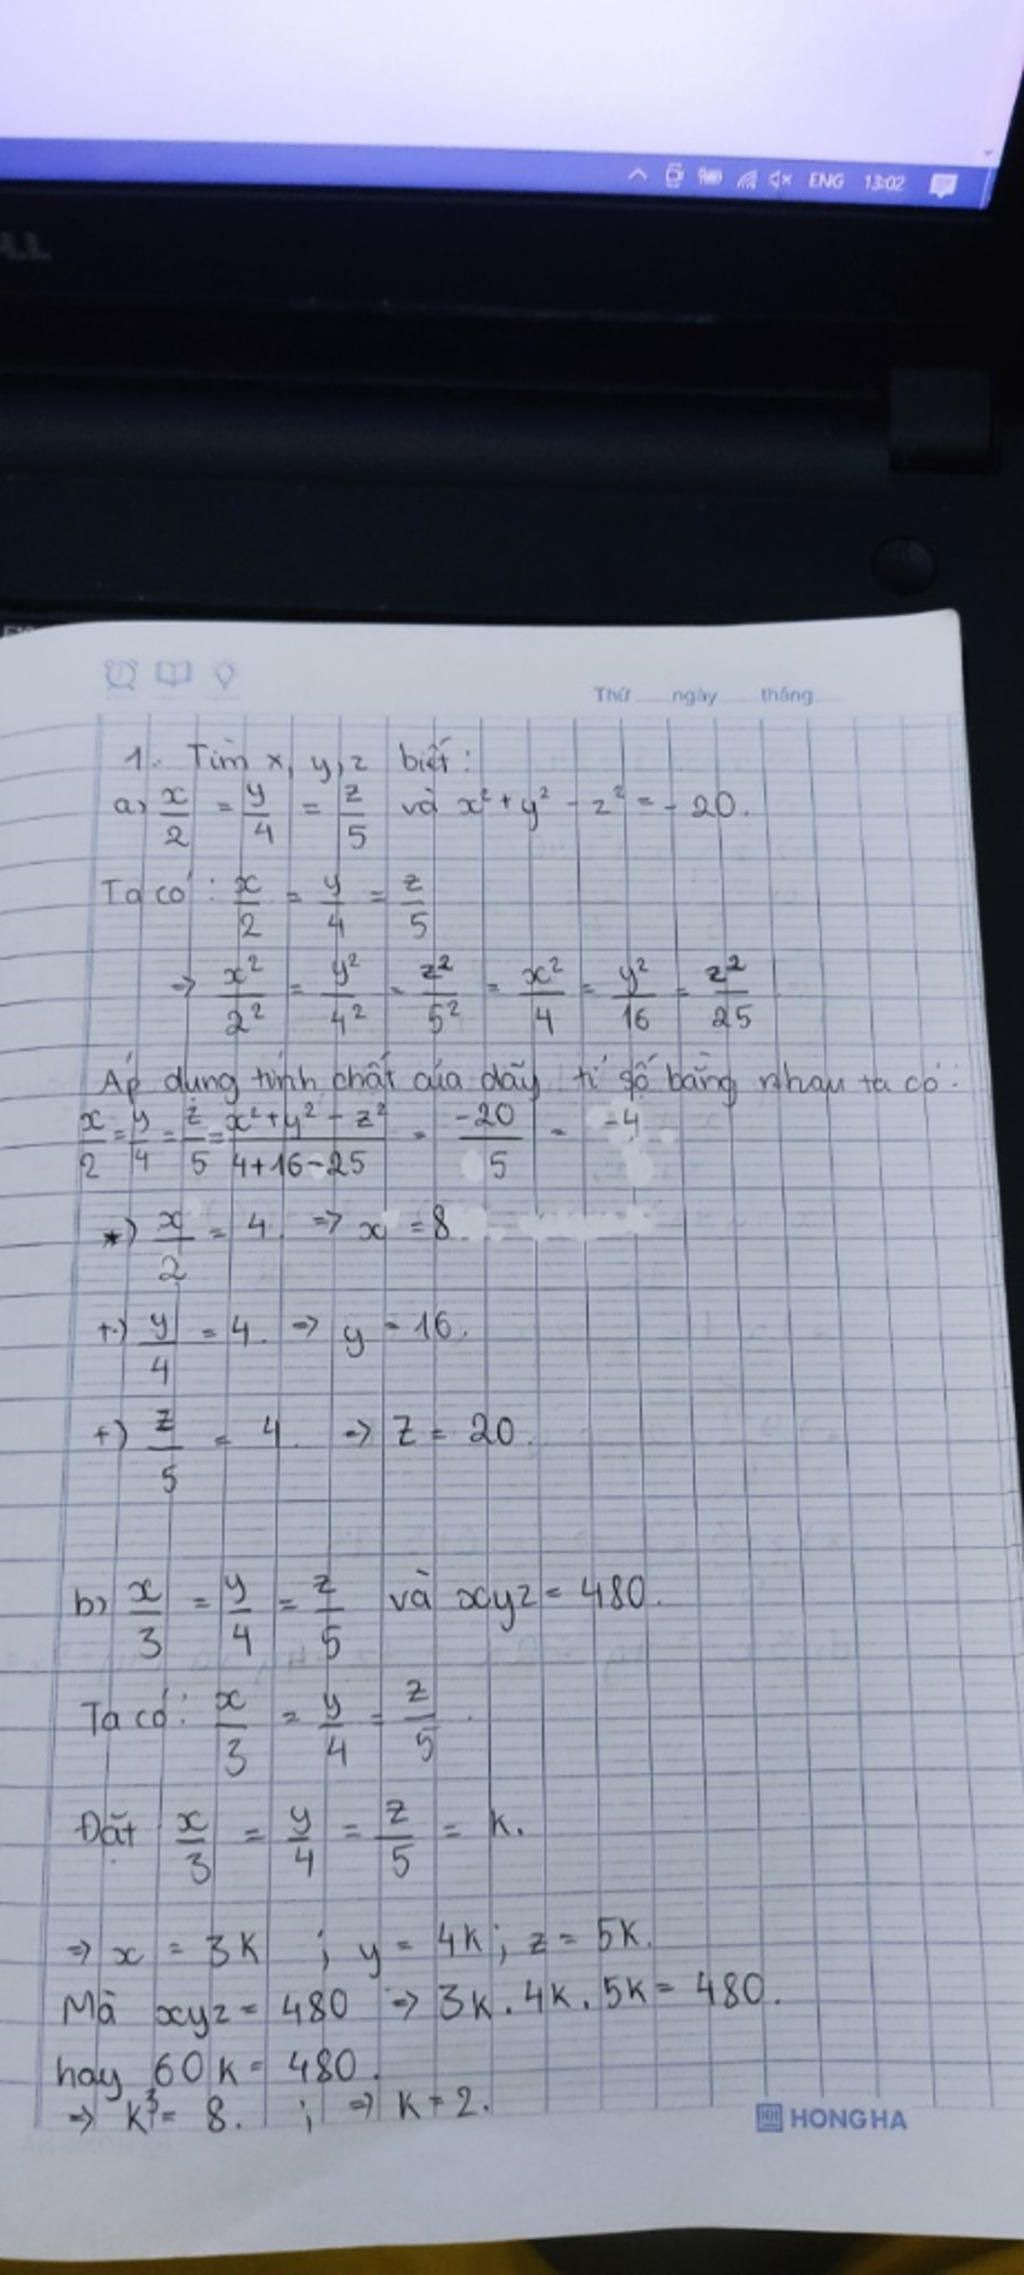 ENG 13:02
Thứ ngày tháng
1. Tìm x, y, z biết:
a) x/2 = y/4 = z/5 và x² + y² - z² = -20.
Ta có: x/2 = y/4 = z/5
⇒ x²/2² = y²/4² = z²/5² = x²/4 = y²/16 = z²/25
Áp dụng tính chất của dãy tỉ số bằng nhau ta có:
x/2 = y/4 = z/5 = x²+y²-z²/4+16-25 = -20/5 = -4
*) x/2 = 4 ⇒ x = 8
+) y/4 = 4. ⇒ y = 16.
+) z/5 = 4. ⇒ z = 20.
b) x/3 = y/4 = z/5 và xyz = 480.
Ta có: x/3 = y/4 = z/5.
Đặt x/3 = y/4 = z/5 = k.
⇒ x = 3k ; y = 4k ; z = 5k.
Mà xyz = 480 ⇒ 3k. 4k. 5k = 480.
hay 60k = 480.
⇒ k³ = 8. ; ⇒ k = 2.
HONG HA